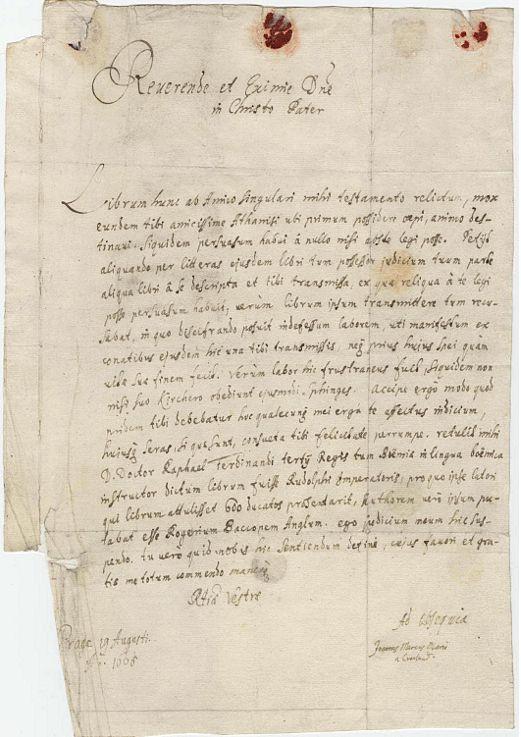 Reverende et Eximie Dñe
in Christo Pater
Librum hunc ab Amico singulari mihi testamento relictum, mox
eundem tibi amicissime Athanasi ubi primum possidere cœpi, animo des-
tinavi: siquidem persuasum habui à nullo nisi abs te legi posse. Petijt
aliquando per litteras ejusdem libri tum possessor judicium tuum parte
aliqua libri à se descripta et tibi transmissa, ex qua reliqua à te legi
posse persuasum habuit; verùm librum ipsum transmittere tum recu-
sabat, in quo discifrando posuit indefessum laborem, uti manifestum ex
conatibus ejusdem hic unà tibi transmissis, neq prius huius spei quàm
vitæ suæ finem fecit. Verùm labor hic frustraneus fuit, siquidem non
nisi suo Kirchero obediunt ejusmodi sphinges. Accipe ergò modo quod
pridem tibi debebatur hoc qualecunq mei erga te affectus indicium,
huiusq seras, si quæ sunt, consueta tibi felicitate perrumpe. retulit mihi
D. Doctor Raphael Ferdinandi tertij Regis tum Boëmiæ in lingua boëmica
instructor dictum librum fuisse Rudolphi Imperatoris, pro quo ipse latori
qui librum attulisset 600 ducatos præsentarit, Authorem verò ipsum pu-
tabat esse Rogerium Bacconem Anglum. ego judicium meum hic sus-
pendo. tu verò quid nobis hic sentiendum defini, cujus favori et gra-
tiæ me totum commendo maneoq
Rtiæ Vestræ
Ad Obsequia
Joannes Marcus Marci
a Cronland
Pragæ 19 Augusti
1665